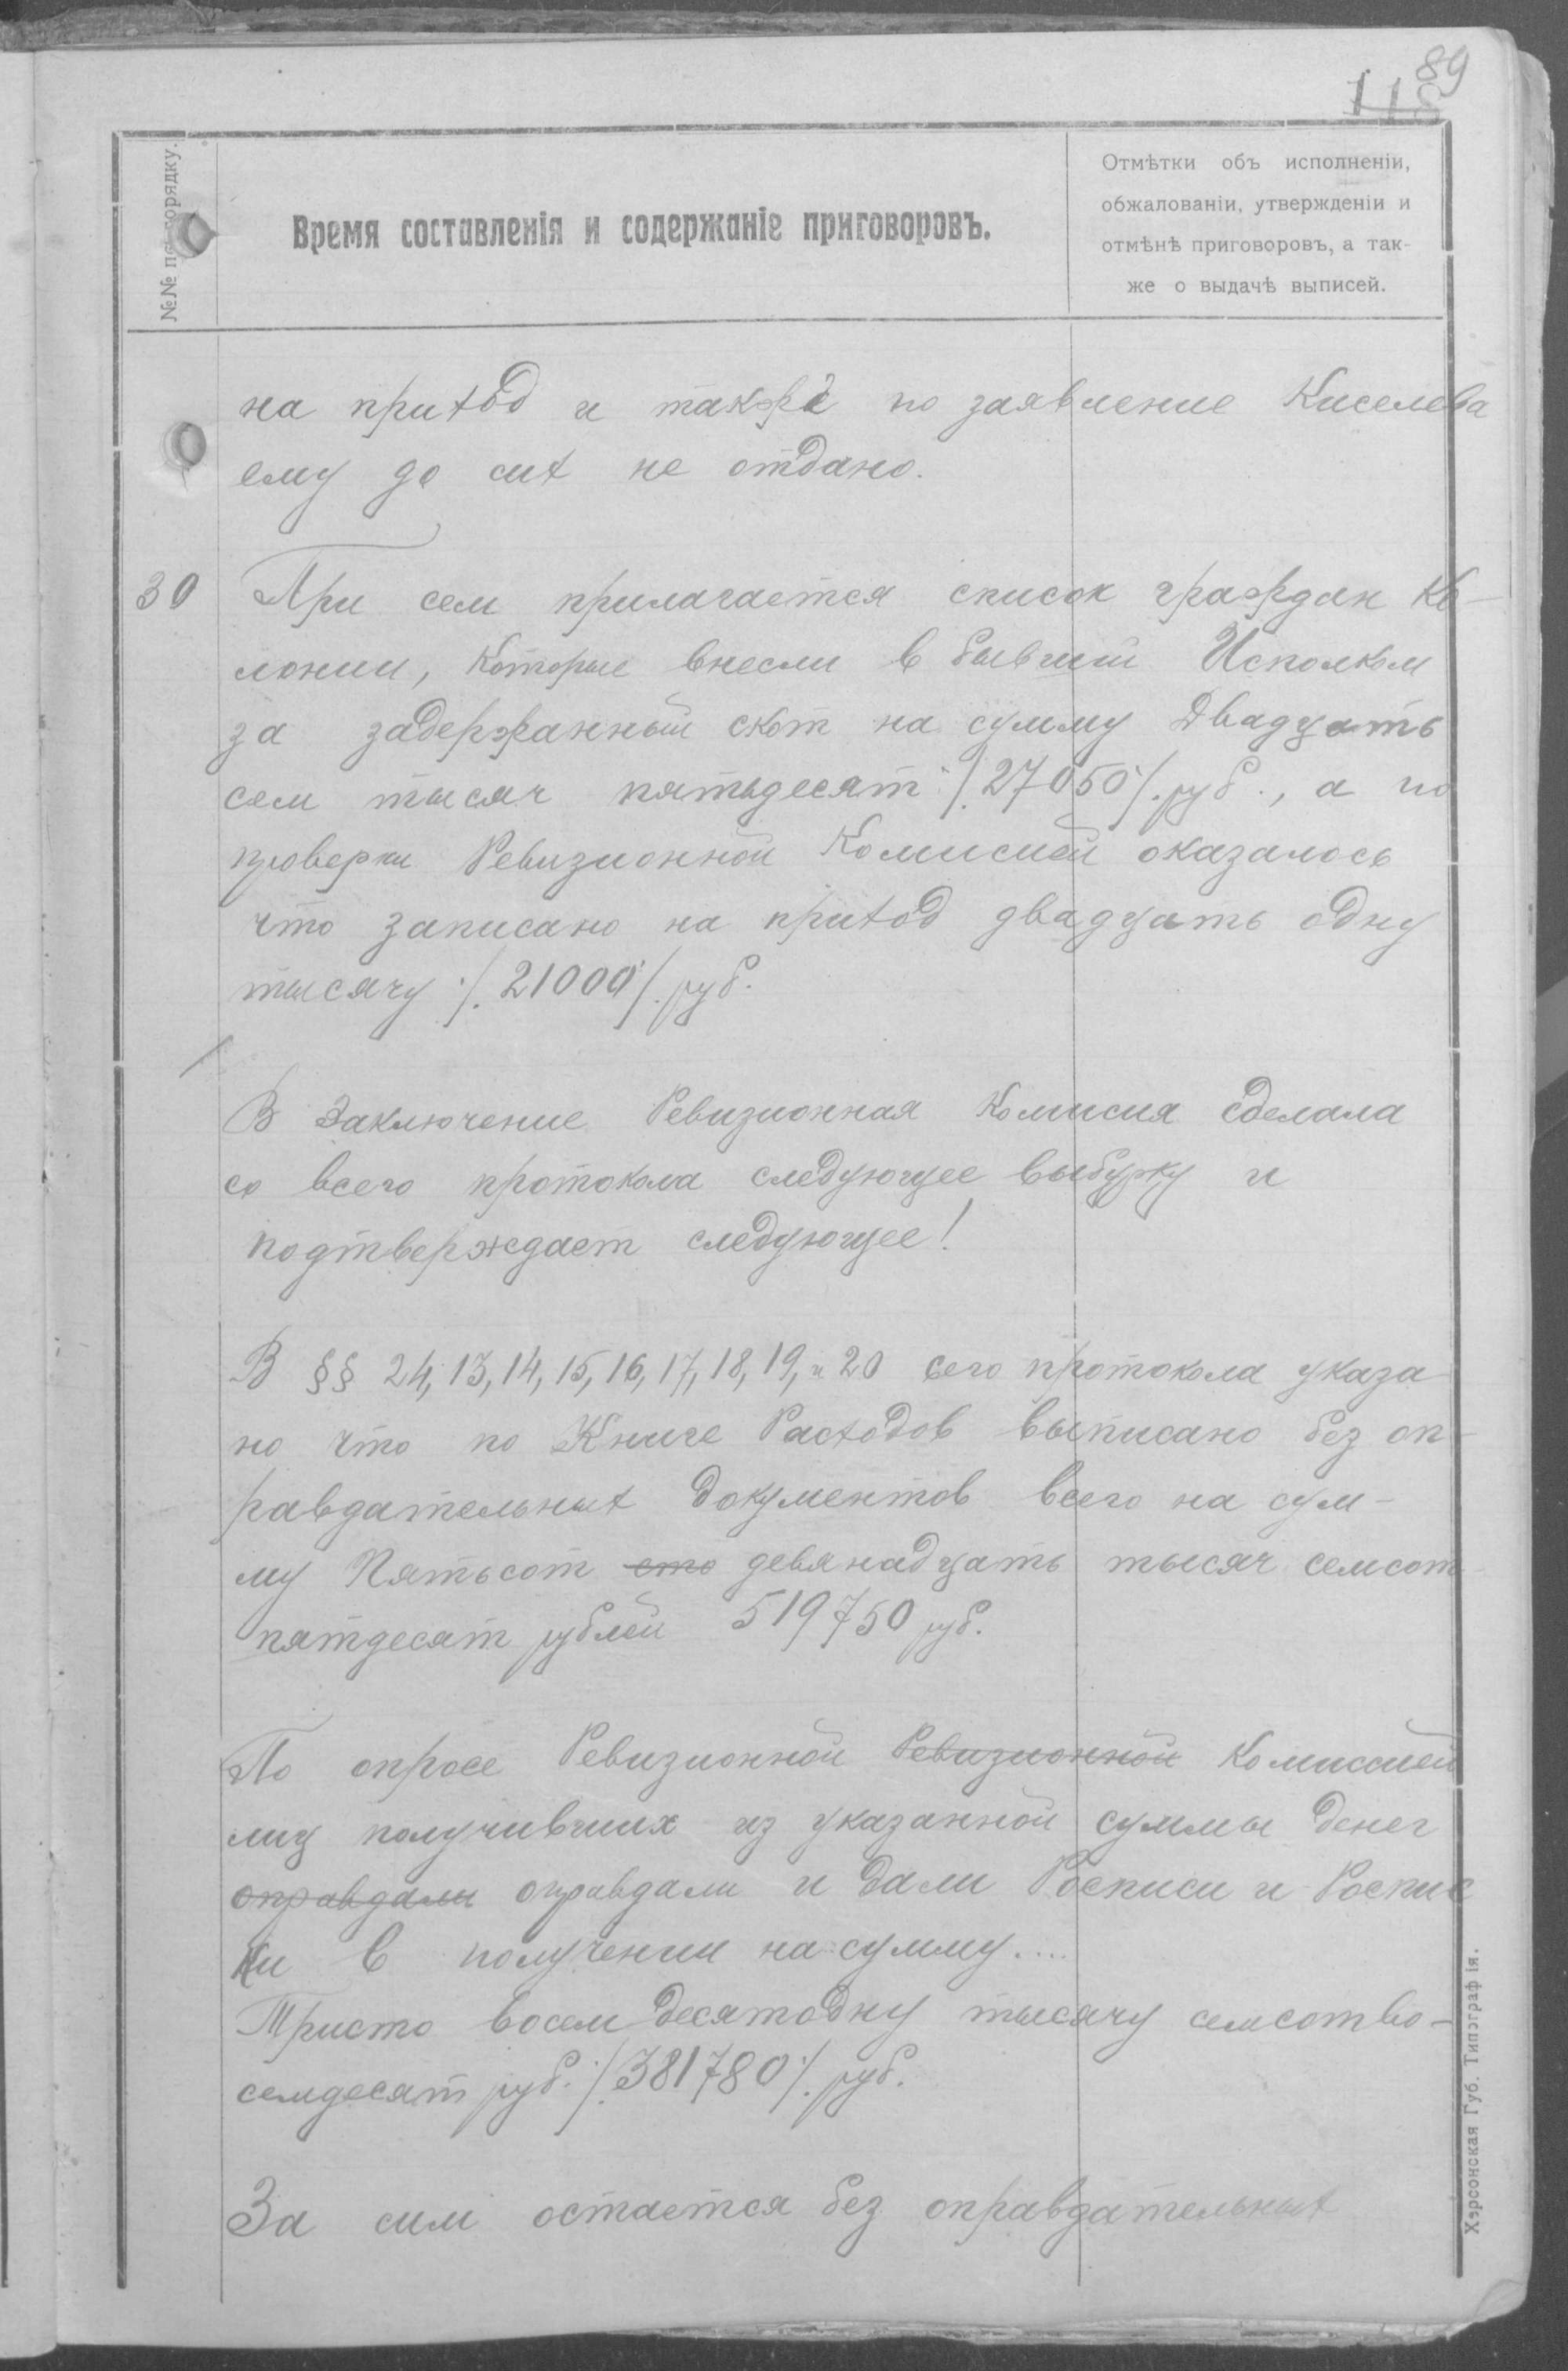 89
118
№№ по порядку.
Время составленія и содержаніе приговоровъ.
Отмѣтки объ исполненіи,
обжалованіи, утвержденіи и
отмѣнѣ приговоровъ, а так-
же о выдачѣ выписей.
на приход и также по заявление Киселева
ему до сих не отдано.
30 При сем прилагается список граждан Ко-
лонии, которые внесли в бывший Исполком
за задержанный скот на сумму двадцать
сем тысяч пятьдесят /27050/ руб., а по
проверки Ревизионной Комисией оказалось
что записано на приход двадцать одну
тысячу /21000/ руб.
В Заключение Ревизионная Комисия сделала
со всего протокола следующее выбурку и
подтверждает следующее!
В §§ 24, 13, 14, 15, 16, 17, 18, 19, и 20 сего протокола указа
но что по Книге Расходов выписано без оп-
равдательных документов всего на сум-
му Пятьсот сто девянадцать тысяч семсот
пятдесят рублей 519750 руб.
По опросе Ревизионной Ревизионной Комиссией
лиц получивших из указанной суммы денег
оправдали оправдали и дали Росписи и Роспис
ки в получении на сумму....
Тристо восемдесятодну тысячу семсотво-
семдесят руб. /381780/ руб.
За сим остается без оправдательных
Херсонская Губ. Типографія.